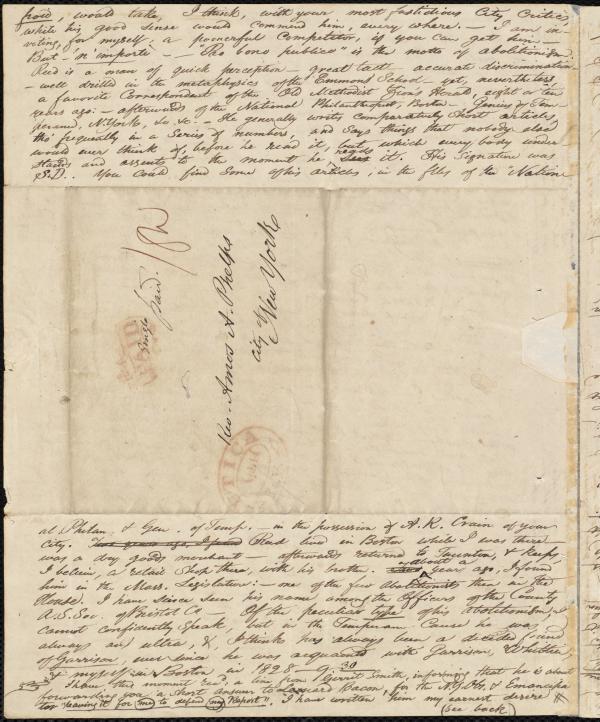 froid, would take, I think, with your most fastidious City Critics,
while his good sense would commend him, every where. I am in-
viting, for myself, a powerful Competitor, if you can get him.
But - 'n' importe' - - "Pro bono publico" is the motto of abolitionism.
Reid is a man of quick perception - great tact - accurate discrimination
- well drilled in the metaphysics of the Emmons School - yet, nevertheless,
a favorite Correspondent of the Old Methodist Zion's Herald, eight or ten
years ago: - afterwards of the National Philanthropist, Boston, - Genius of Tem-
perance, N. York, &c. &c. - He generally writes comparatively short articles,
tho' frequently in a Series of numbers, and says things that nobody else
would ever think of, before he read it, but which every body under-
stands and assents to the moment he reads it. His Signature was
S.D.. You could find some of his articles, in the files of the Nation
Single
Paid.
18¾
PAID
Rev. Amos A. Phelps
City of New York
UTICA
at Philan. & Gen. of Temp. - in the possession of A. R. Crain of your
city. Two years ago, I found Reid lived in Boston while I was there -
was a dry goods merchant - afterwards returned to Taunton, & keeps,
I believe, a retail shop there, with his brother. about a year ago, I found
him in the Mass. Legislature: - one of the few abolitionists then in the
House. I have since seen his name among the Officers of the County
A. S. Soc. of Bristol Co - Of the peculiar type of his abolitionism I
cannot confidently speak, but in the Temperance Cause he was
always an ultra, &, I think has always been a decided friend
of Garrison, ever since he was acquainted with Garrison, Whittier,
& myself in Boston in 1828-9-30
I have this moment rec'd, a line from Gerrit Smith, informing that he is about
forwarding you a short answer to Leonard Bacon, for the N. Y. Ev. & Emancipa-
tor "leaving it for me to defend my Report". I have written him my earnest desire
(see back)